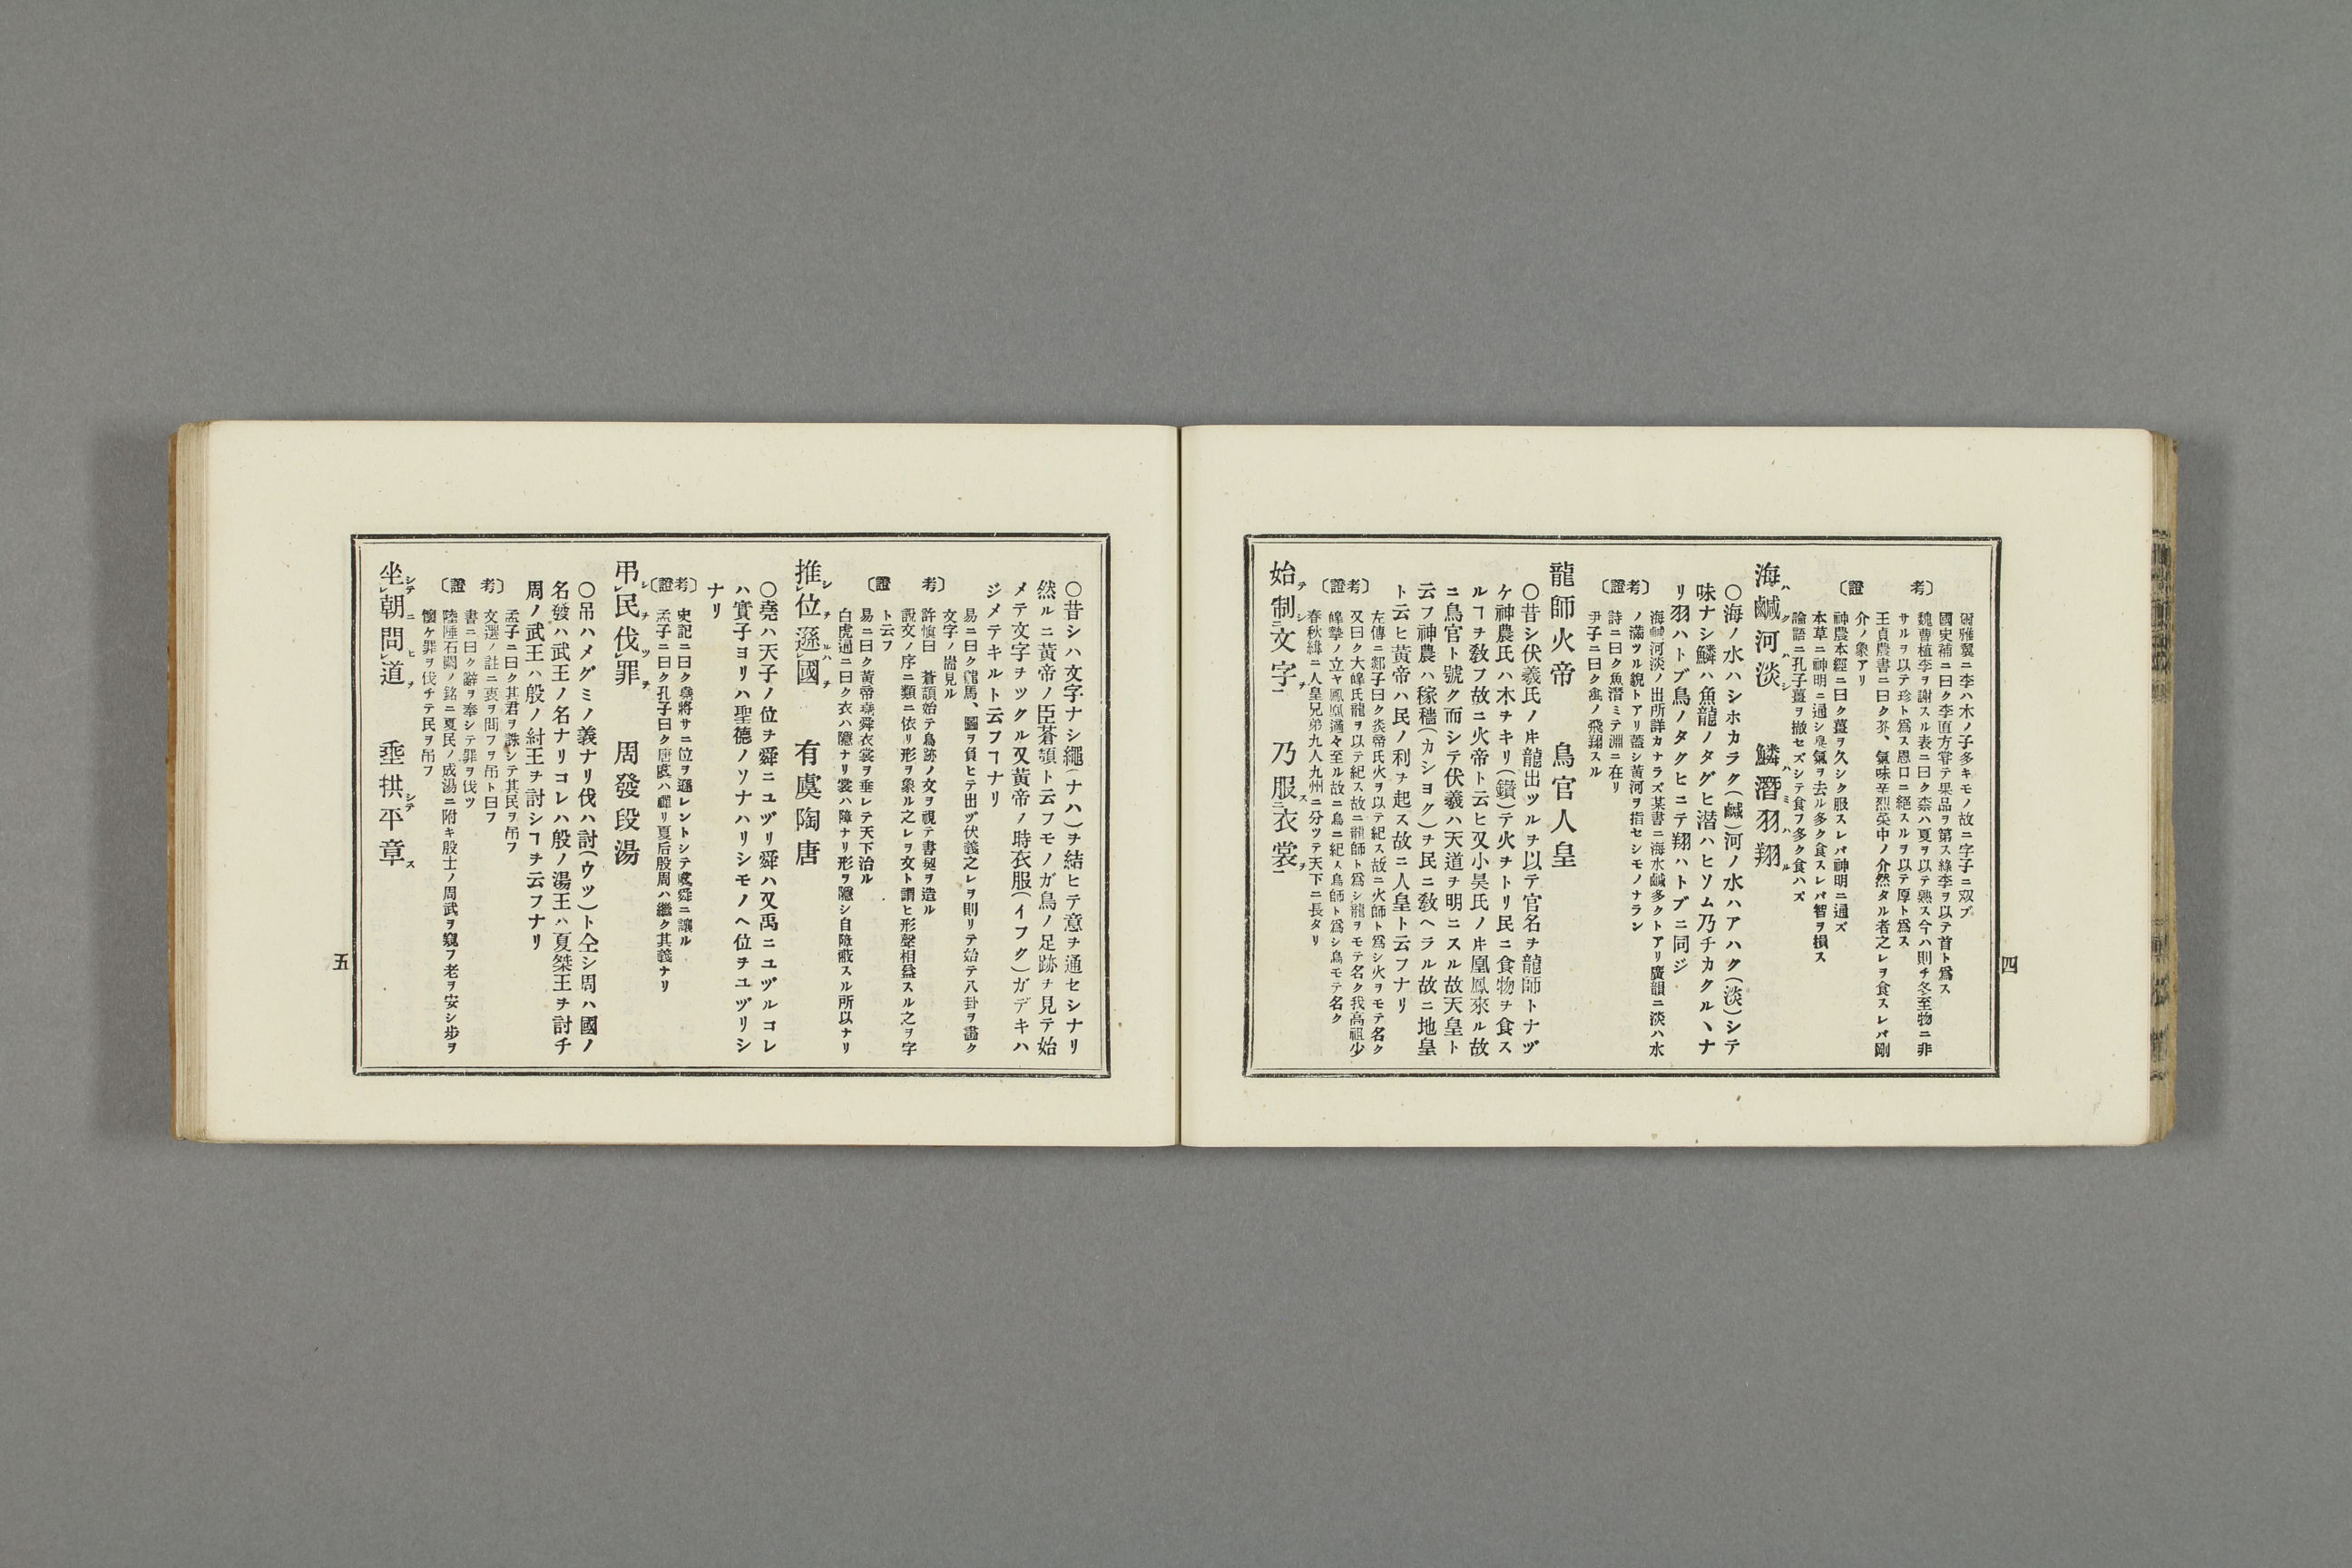 四
爾雅翼ニ李ハ木ノ子多キモノ故ニ字子ニ双ブ
國史補ニ曰ク李直方嘗テ果品ヲ第ス綠李ヲ以テ首ト爲ス
〔考
魏曹植李ヲ謝スル表ニ曰ク柰ハ夏ヲ以テ熟ス今ハ則チ冬至物ニ非
サルヲ以テ珍ト爲ス恩口ニ絕スルヲ以テ厚ト爲ス
王貞農書ニ曰ク芥、氣味辛烈菜中ノ介然タル者之レヲ食スレバ剛
介ノ象アリ
證〕
神農本經ニ曰ク薑ヲ久シク服スレバ神明ニ通ズ
本草ニ神明ニ通シ臭氣ヲ去ル多ク食スレバ智ヲ損ス
論語ニ孔子薑ヲ撤セズシテ食フ多ク食ハズ
海ハ鹹ク河ハ淡シ 鱗ハ潛ミ羽ハ翔ル
〇海ノ水ハシホカラク(鹹)河ノ水ハアハク(淡)シテ
味ナシ鱗ハ魚龍ノタグヒ潜ハヒソム乃チカクルヽナ
リ羽ハトブ鳥ノタクヒニテ翔ハトブニ同ジ
〔考證〕
海鹹河淡ノ出所詳カナラズ某書ニ海水鹹多クトアリ廣韻ニ淡ハ水
ノ滿ツル貌トアリ蓋シ黄河ヲ指セシモノナラン
詩ニ曰ク魚潛ミテ淵ニ在リ
尹子ニ曰ク禽ノ飛翔スル
龍師火帝 鳥官人皇
〇昔シ伏羲氏ノ𪜈龍出ツルヲ以テ官名ヲ龍師トナヅ
ケ神農氏ハ木ヲキリ(鑽)テ火ヲトリ民ニ食物ヲ食ス
ルヿヲ敎フ故ニ火帝ト云ヒ又小昊氏ノ𪜈凰鳳來ル故
ニ鳥官ト號ク而シテ伏羲ハ天道ヲ明ニスル故天皇ト
云フ神農ハ稼穡(カシヨク)ヲ民ニ敎ヘラル故ニ地皇
ト云ヒ黄帝ハ民ノ利ヲ起ス故ニ人皇ト云フナリ
〔考證〕
左傳ニ郯子曰ク炎帝氏火ヲ以テ紀ス故ニ火師ト爲シ火ヲモテ名ク
又曰ク大皞氏龍ヲ以テ紀ス故ニ龍師ト爲シ龍ヲモテ名ク我高祖少
皞摯ノ立ヤ鳳凰適々至ル故ニ鳥ニ紀ス鳥師ト爲シ鳥モテ名ク
春秋緯ニ人皇兄弟九人九州ニ分ツテ天下ニ長タリ
始テ制シ二文字ヲ一 乃服ス二衣裳ヲ一
〇昔シハ文字ナシ繩(ナハ)ヲ結ヒテ意ヲ通セシナリ
然ルニ黄帝ノ臣蒼頡ト云フモノガ鳥ノ足跡ヲ見テ始
メテ文字ヲツクル又黄帝ノ時衣服(イフク)ガデキハ
ジメテキルト云フヿナリ
易ニ曰ク龍馬、圖ヲ負ヒテ出ヅ伏義之レヲ則リテ始テ八卦ヲ畫ク
文字ノ耑見ル
〔考
許愼曰 蒼頡始テ鳥跡ノ文ヲ視テ書契ヲ造ル
說文ノ序ニ類ニ依リ形ヲ象ル之レヲ文ト謂ヒ形聲相益スル之ヲ字
ト云フ
證〕
易ニ曰ク黄帝堯舜衣裳ヲ垂レテ天下治ル
白虎通ニ曰ク衣ハ隱ナリ裳ハ障ナリ形ヲ隱シ自障蔽スル所以ナリ
推シレ位ヲ遜ルハレ國ヲ 有虞陶唐
〇堯ハ天子ノ位ヲ舜ニユヅリ舜ハ又禹ニユヅルコレ
ハ實子ヨリハ聖德ノソナハリシモノヘ位ヲユヅリシ
ナリ
〔考證〕
史記ニ曰ク堯將サニ位ヲ遜レントシテ虞舜ニ讓ル
孟子ニ曰ク孔子曰ク唐虞ハ禪リ夏后殷周ハ繼ク其義ナリ
弔シレ民ヲ伐ツレ罪ヲ 周發段湯
〇吊ハメグミノ義ナリ伐ハ討(ウツ)ト仝シ周ハ國ノ
名發ハ武王ノ名ナリコレハ殷ノ湯王ハ夏桀王ヲ討チ
周ノ武王ハ殷ノ紂王ヲ討シヿヲ云フナリ
孟子ニ曰ク其君ヲ誅シテ其民ヲ吊フ
〔考
文選ノ註ニ衷ヲ問フヲ吊ト曰フ
書ニ曰ク辭ヲ奉シテ罪ヲ伐ツ
證〕
陸陲石闕ノ銘ニ夏民ノ成湯ニ附キ殷士ノ周武ヲ窺フ老ヲ安シ步ヲ
懷ケ罪ヲ伐チテ民ヲ吊フ
坐シテレ朝ニ問ヒレ道ヲ 埀拱シテ平章ス
五